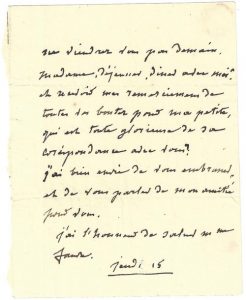 ne viendrez vous pas demain,
madame, déjeuner, diner avec moi,
et recevoir mes remerciemens de
toutes vos bontés pour ma petite,
qui est toute glorieuse de sa
corespondance avec vous?
j'ai bien envie de vous embrasser
et de vous parler de mon amitié
pour vous.
j'ai l'honneur de saluer m me
jeudi 15